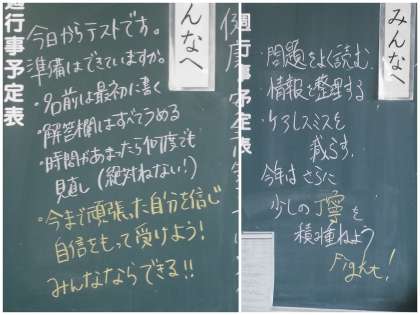 みんなへ
週行事予定表
今日からテストです。
準備はできていますか。
・名前は最初に書く
・解答欄はすべてうめる
・時間があまったら何度も
見直し(絶対ねない!)
・今まで頑張った自分を信じ
自信をもって受けよう!
みんなならできる!!
みんなへ
週行事予定表
・問題をよく読む
・情報を整理する
・ケアレスミスを
減らす。
今年はさらに
少しの丁寧を
積み重ねよう
Fight!